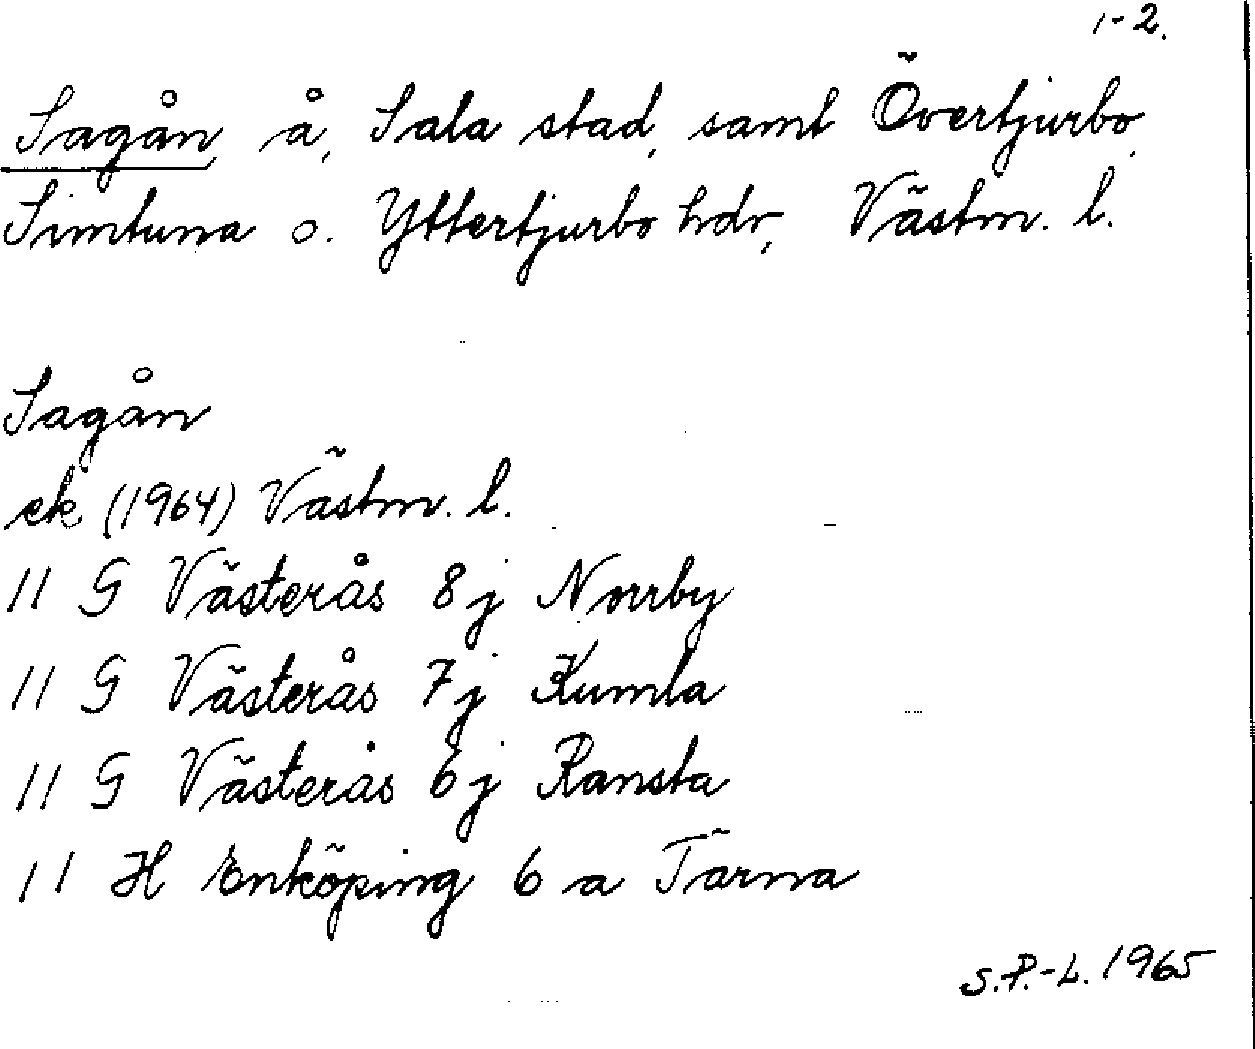 1-2.
Sagån å, Sala stad, samt Övertjurbo,
Simtuna o. Yttertjurbo hdr, Västm. l.
Sagån
ek (1964) Västm. l.
11 G Västerås 8j Norrby
11 G Västerås 7j Kumla
11 G Västerås 6j Ransta
11 H Enköping 6 a Tärna
S.P.-L. 1965